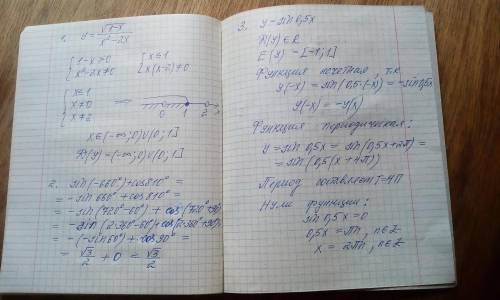 1. y = √(1-x) / (x²-2x)
{ 1-x≥0   { x≤1
{ x²-2x≠0   { x(x-2)≠0
{ x≤1
{ x≠0
{ x≠2
0 1 2
x∈(-∞;0)∪(0;1]
D(y)=(-∞;0)∪(0;1]
2. sin(-660°)+cos810° =
= -sin660°+cos810° =
= -sin(720°-60°) + cos(720°+90°)
= -sin(2·360°-60°)+cos(2·360°+90°)=
= -(-sin60°)+cos90° =
= √3/2 + 0 = √3/2
3. y = sin0,5x
D(y)∈R
E(y) = [-1;1]
Функция нечетная, т.к
y(-x) = sin(0,5·(-x)) = -sin0,5x
y(-x) = -y(x)
Функция периодическая:
y = sin0,5x = sin(0,5x+2π) =
= sin(0,5(x+4π))
Период составляет T=4π
Нули функции:
sin0,5x = 0
0,5x = πn, n∈Z
x = 2πn, n∈Z